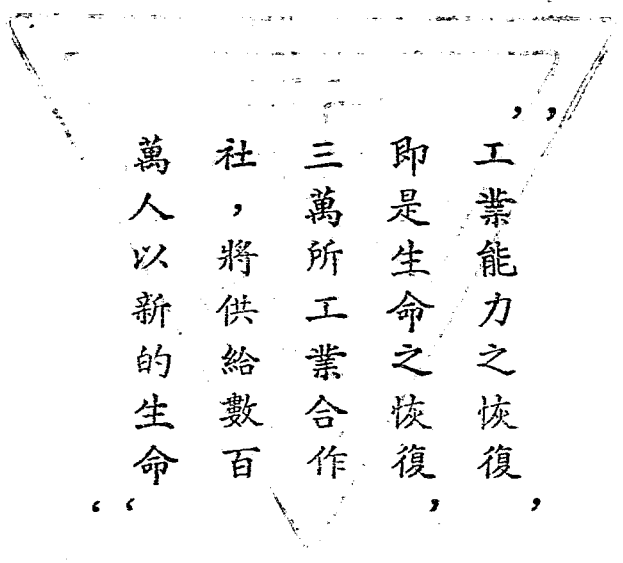 ,,工業能力之恢復,
即是生命之恢復,
三萬所工業合作
社,將供給數百
萬人以新的生命‘‘